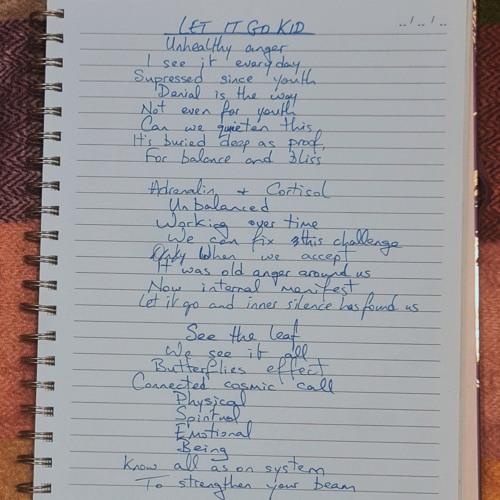 LET IT GO KID
.. / .. / ..
Unhealthy anger
I see it everyday
Supressed since youth
Denial is the way
Not even for youth
Can we quieten this
It's buried deep as proof,
For balance and Bliss
Adrenalin + Cortisol
Unbalanced
Working over time
We can fix this challenge
Only When we accept
It was old anger around us
Now internal manifest
Let it go and inner silence has found us
See the leaf
We see it all
Butterflies effect
Connected cosmic call
Physical
Spiritual
Emotional
Being
Know all as on system
To strengthen your beam